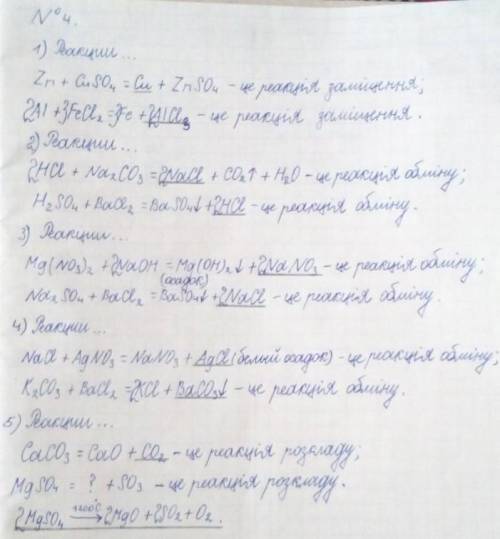 №4.
1) Реакции...
Zn + CuSO₄ = Cu + ZnSO₄ - це реакція заміщення;
2Al + 3FeCl₂ = 3Fe + 2AlCl₃ - це реакція заміщення.
2) Реакции...
2HCl + Na₂CO₃ = 2NaCl + CO₂↑ + H₂O - це реакція обміну;
H₂SO₄ + BaCl₂ = BaSO₄↓ + 2HCl - це реакція обміну.
3) Реакции...
Mg(NO₃)₂ + 2NaOH = Mg(OH)₂↓ + 2NaNO₃ - це реакція обміну;
(осадок)
Na₂SO₄ + BaCl₂ = BaSO₄↓ + 2NaCl - це реакція обміну.
4) Реакции...
NaCl + AgNO₃ = NaNO₃ + AgCl (белый осадок) - це реакція обміну;
K₂CO₃ + BaCl₂ = 2KCl + BaCO₃↓ - це реакція обміну.
5) Реакции...
CaCO₃ = CaO + CO₂ - це реакція розкладу;
MgSO₄ = ? + SO₃ - це реакція розкладу.
2MgSO₄ 1200°C→ 2MgO + 2SO₂ + O₂.